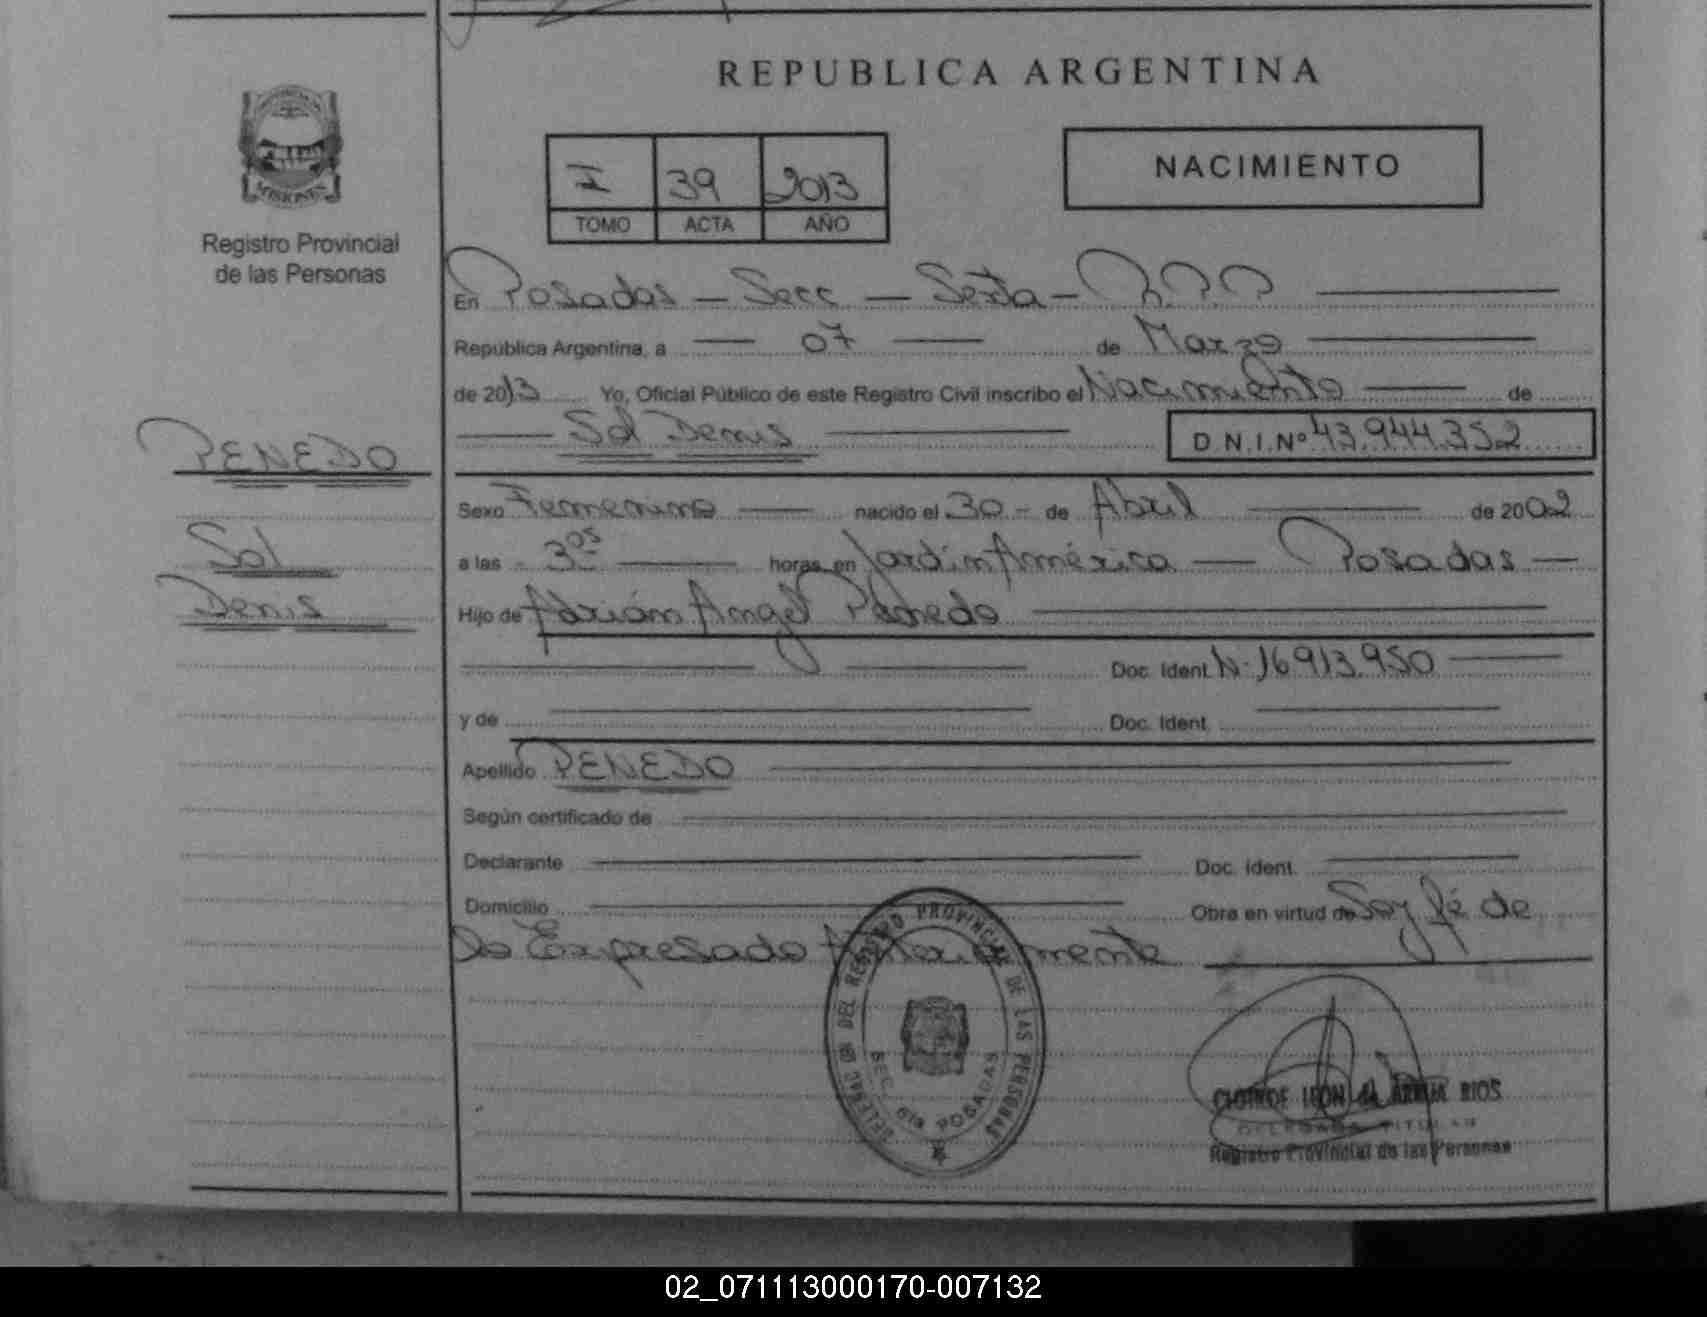 REPUBLICA ARGENTINA
MISIONES
Registro Provincial
de las Personas
I 39 2013
TOMO ACTA AÑO
NACIMIENTO
En Posadas - Secc - Sexta -
República Argentina, a 07 de Marzo
de 2013 Yo, Oficial Público de este Registro Civil inscribo el Nacimiento de
Sol Denis D.N.I.Nº 43.944.352
PENEDO
Sol
Denis
Sexo Femenino nacido el 30 - de Abril de 2002
a las 3 05 horas en Jardín América - Posadas -
Hijo de Adrián Angel Penedo
Doc. Ident. Nº 16913.950
y de Doc. Ident.
Apellido PENEDO
Según certificado de
Declarante Doc. Ident.
Domicilio Obra en virtud de Soy fé de
lo Expresado Anteriormente
DELEGACION DEL REGISTRO PROVINCIAL DE LAS PERSONAS
SEC. 6ta POSADAS
RIOS
DELEGADA TITULAR
Registro Provincial de las Personas
02_071113000170-007132